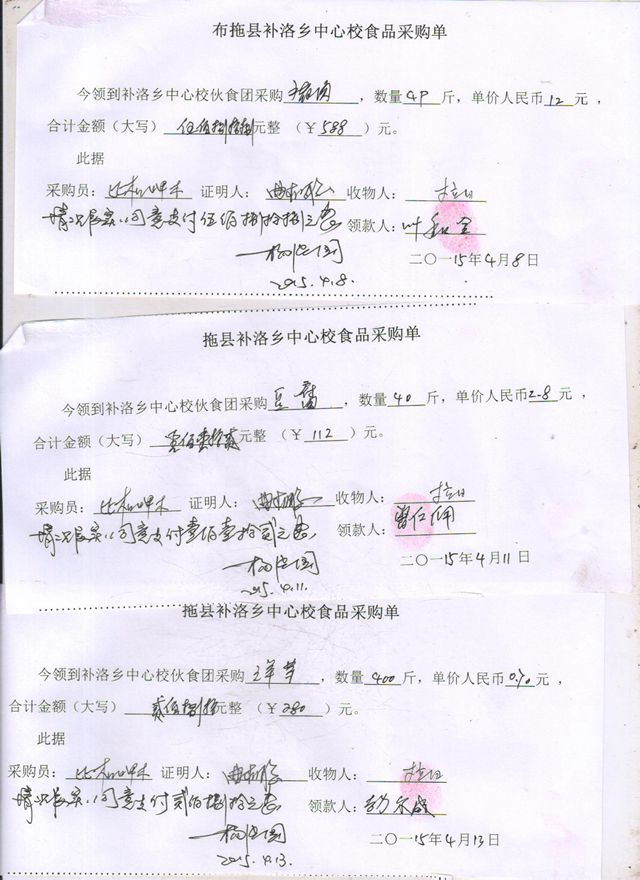 布拖县补洛乡中心校食品采购单
今领到补洛乡中心校伙食团采购，数量49斤，单价人民币12元，
合计金额（大写）伍佰捌拾捌元整（￥588）元。
此据
采购员：比布呷木 证明人： 收物人：拉日
情况属实，同意支付伍佰捌拾捌元 领款人：叶和全
二〇一15年4月8日
2015.4.8.
拖县补洛乡中心校食品采购单
今领到补洛乡中心校伙食团采购豆腐，数量40斤，单价人民币2.8元，
合计金额（大写）壹佰壹拾贰元整（￥112）元。
此据
采购员：比布呷木 证明人： 收物人：拉日
情况属实，同意支付壹佰壹拾贰元 领款人：
二〇一15年4月11日
2015.4.11.
拖县补洛乡中心校食品采购单
今领到补洛乡中心校伙食团采购洋芋，数量400斤，单价人民币0.70元，
合计金额（大写）贰佰捌拾元整（￥280）元。
此据
采购员：比布呷木 证明人： 收物人：拉日
情况属实，同意支付贰佰捌拾元 领款人：
二〇一15年4月13日
2015.4.13.